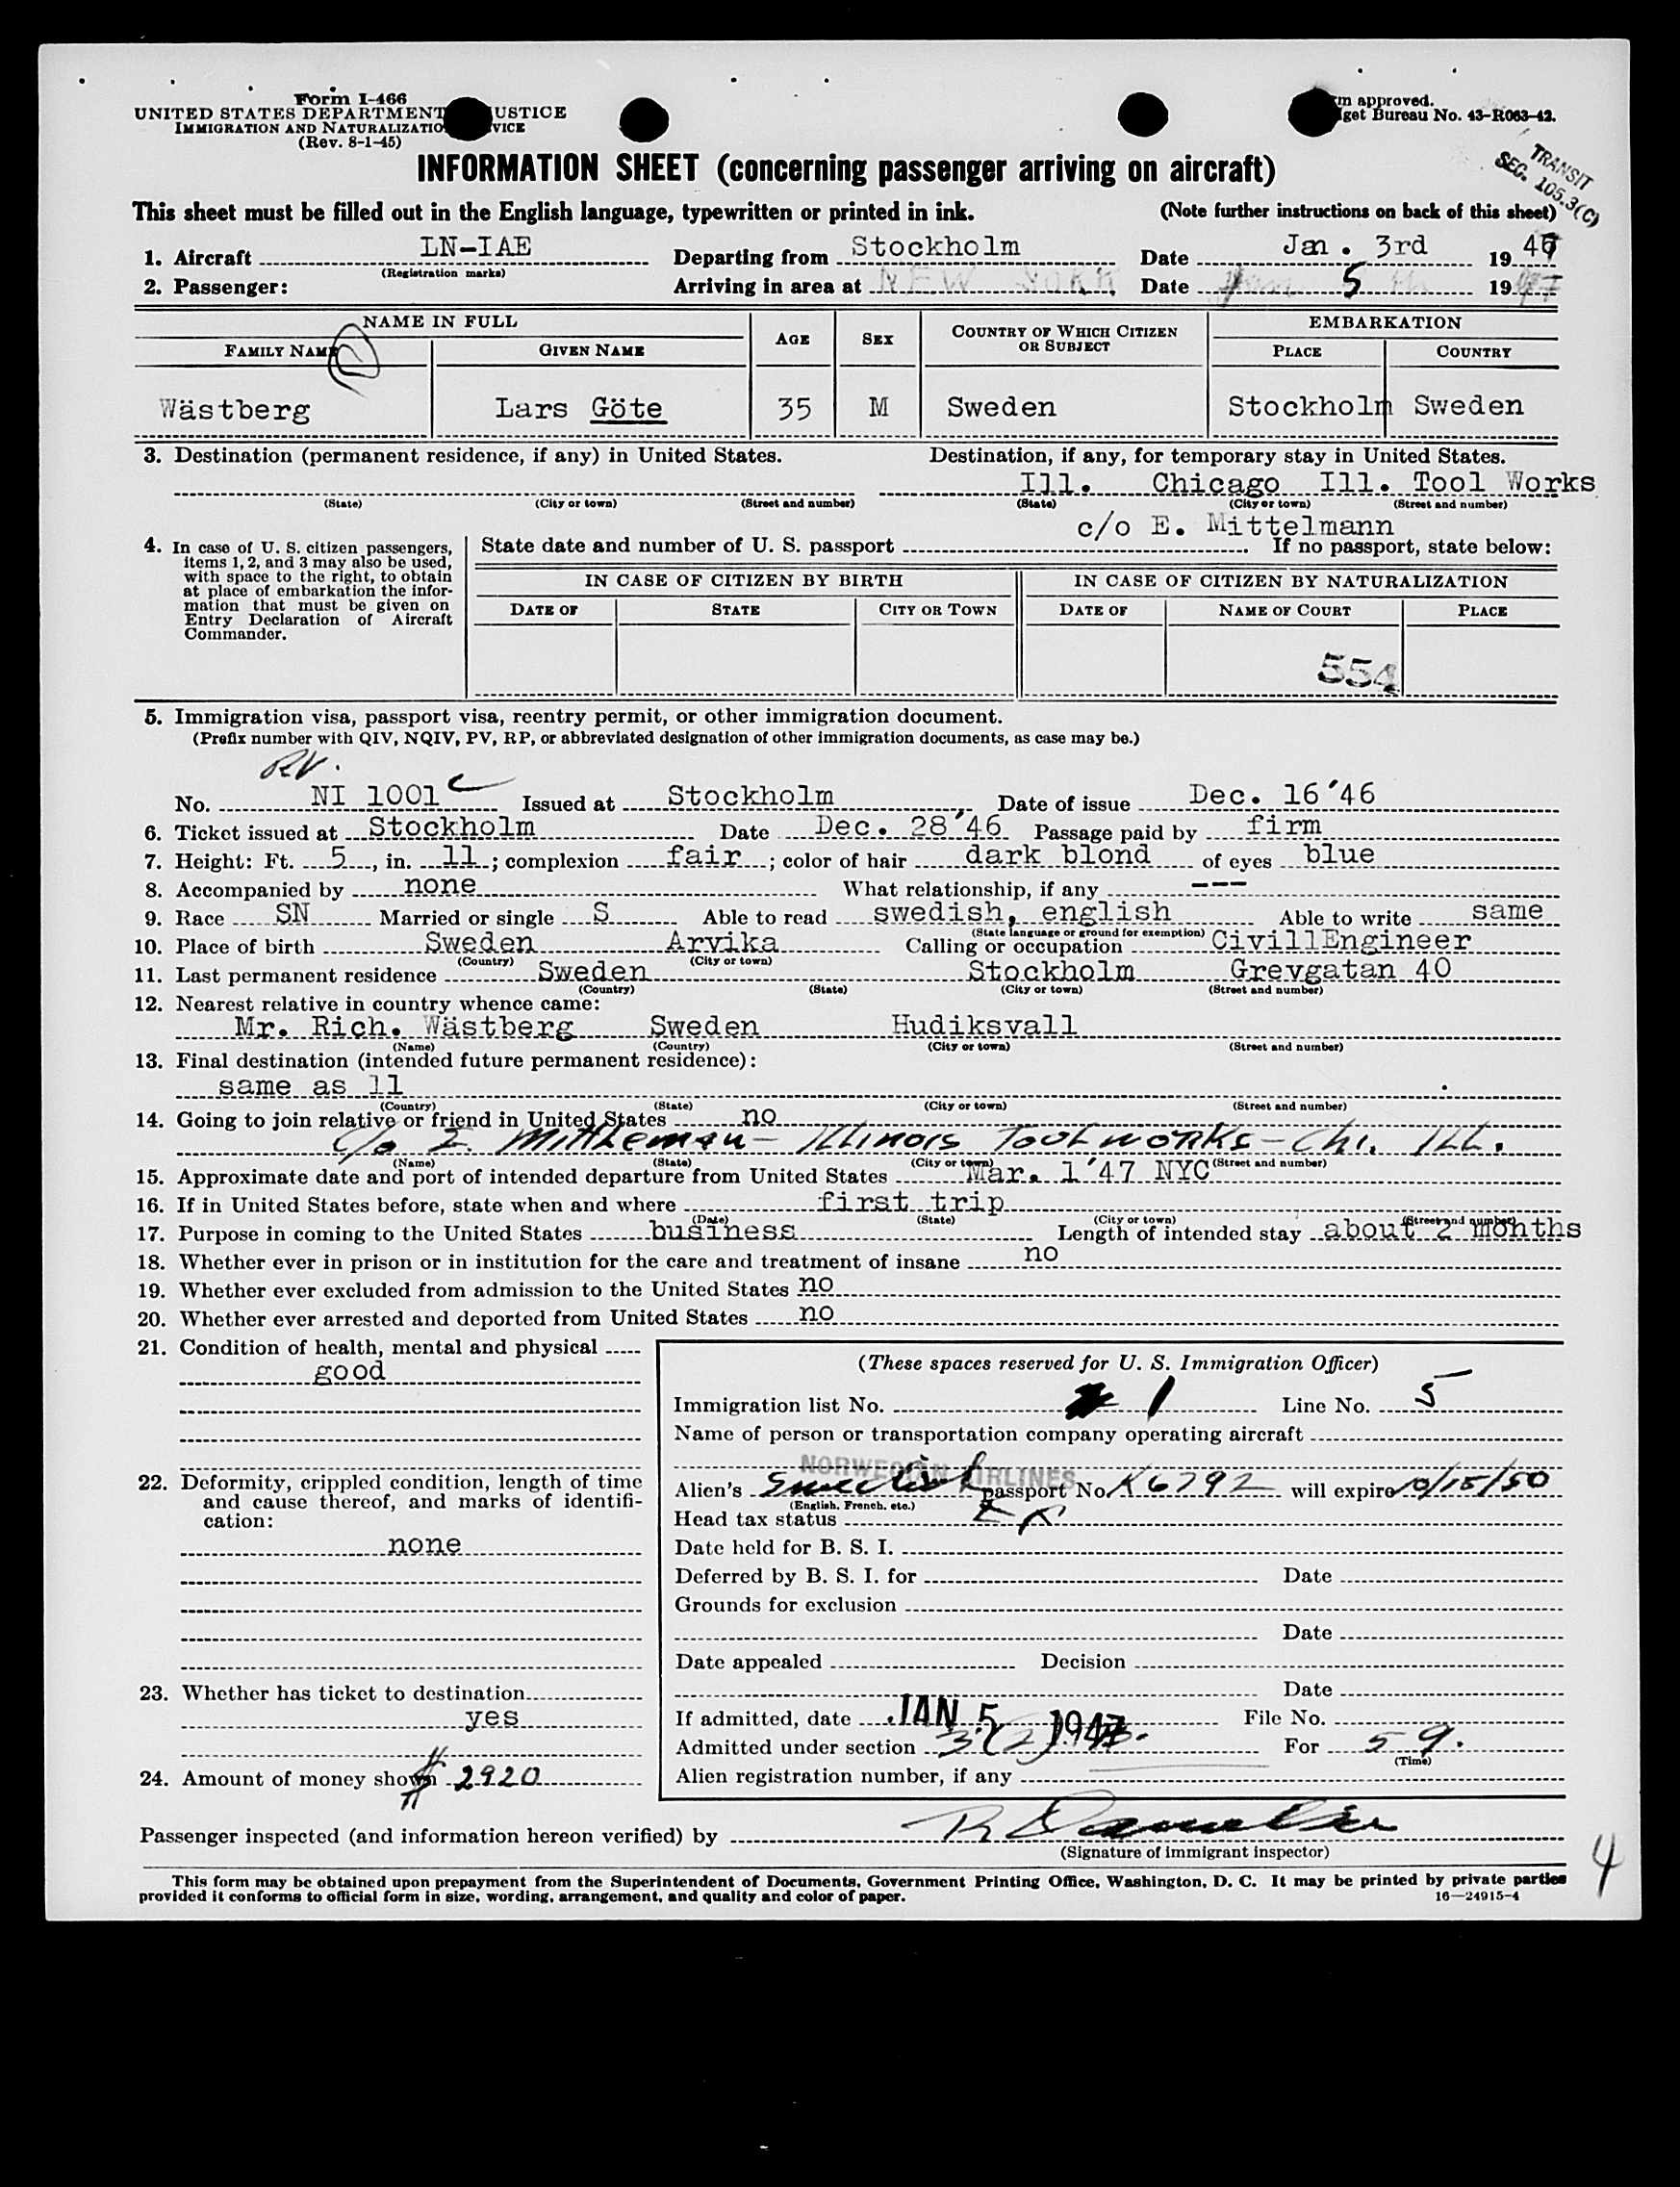 Form I-466
UNITED STATES DEPARTMENT USTICE
IMMIGRATION AND NATURALIZATIO VICE
(Rev. 8-1-45)
m approved.
get Bureau No. 43-R063-42.
TRANSIT
SEC. 105.3(C)
INFORMATION SHEET (concerning passenger arriving on aircraft)
This sheet must be filled out in the English language, typewritten or printed in ink. (Note further instructions on back of this sheet)
1. Aircraft LN-IAE Departing from Stockholm Date Jan. 3rd 1947
(Registration marks)
2. Passenger: Arriving in area at NEW YORK Date Jan 5 th 1947
NAME IN FULL AGE SEX COUNTRY OF WHICH CITIZEN OR SUBJECT EMBARKATION
FAMILY NAME GIVEN NAME PLACE COUNTRY
Wästberg Lars Göte 35 M Sweden Stockholm Sweden
3. Destination (permanent residence, if any) in United States. Destination, if any, for temporary stay in United States.
Ill. Chicago Ill. Tool Works
(State) (City or town) (Street and number) (State) (City or town) (Street and number)
c/o E. Mittelmann
4. In case of U. S. citizen passengers, items 1, 2, and 3 may also be used, with space to the right, to obtain at place of embarkation the information that must be given on Entry Declaration of Aircraft Commander.
State date and number of U. S. passport . If no passport, state below:
IN CASE OF CITIZEN BY BIRTH IN CASE OF CITIZEN BY NATURALIZATION
DATE OF STATE CITY OR TOWN DATE OF NAME OF COURT PLACE
554
5. Immigration visa, passport visa, reentry permit, or other immigration document.
(Prefix number with QIV, NQIV, PV, RP, or abbreviated designation of other immigration documents, as case may be.)
No. NI 1001 Issued at Stockholm Date of issue Dec. 16'46
6. Ticket issued at Stockholm Date Dec. 28'46 Passage paid by firm
7. Height: Ft. 5, in. 11; complexion fair; color of hair dark blond of eyes blue
8. Accompanied by none What relationship, if any ---
9. Race SN Married or single S Able to read swedish, english Able to write same
(State language or ground for exemption)
10. Place of birth Sweden Arvika Calling or occupation CivillEngineer
(Country) (City or town)
11. Last permanent residence Sweden Stockholm Grevgatan 40
(Country) (State) (City or town) (Street and number)
12. Nearest relative in country whence came:
Mr. Rich. Wästberg Sweden Hudiksvall
(Name) (Country) (City or town) (Street and number)
13. Final destination (intended future permanent residence):
same as 11
(Country) (State) (City or town) (Street and number)
14. Going to join relative or friend in United States no
c/o E. Mittleman - Illinois Tool works - Chi. ILL.
(Name) (State) (City or town) (Street and number)
15. Approximate date and port of intended departure from United States Mar. 1'47 NYC
16. If in United States before, state when and where first trip
(Date) (State) (City or town) (Street and number)
17. Purpose in coming to the United States business Length of intended stay about 2 months
18. Whether ever in prison or in institution for the care and treatment of insane no
19. Whether ever excluded from admission to the United States no
20. Whether ever arrested and deported from United States no
21. Condition of health, mental and physical
good
22. Deformity, crippled condition, length of time and cause thereof, and marks of identification:
none
23. Whether has ticket to destination
yes
24. Amount of money shown $ 2920
(These spaces reserved for U. S. Immigration Officer)
Immigration list No. 1 Line No. 5
Name of person or transportation company operating aircraft
NORWEGIAN AIRLINES
Alien's Swedish passport No. K6792 will expire 10/15/50
(English, French, etc.)
Head tax status
Date held for B. S. I.
Deferred by B. S. I. for Date
Grounds for exclusion
Date
Date appealed Decision
Date
If admitted, date JAN 5 1947 File No.
Admitted under section 3(2) For 59.
(Time)
Alien registration number, if any
Passenger inspected (and information hereon verified) by
(Signature of immigrant inspector)
4
This form may be obtained upon prepayment from the Superintendent of Documents, Government Printing Office, Washington, D. C. It may be printed by private parties
provided it conforms to official form in size, wording, arrangement, and quality and color of paper. 16—24915-4